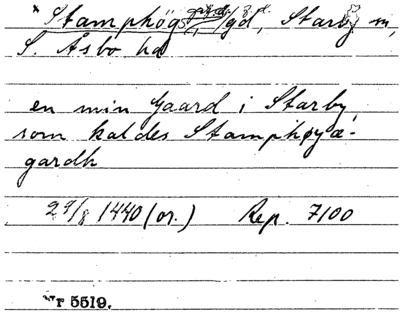 * Stamphögs gård, gd, Starby sn,
S. Åsbo hd
en min Gaard i Starby,
som kaldes Stamphøyæ-
gardh
27/8 1440 (or.) Rep. 7100
Nr 5519.